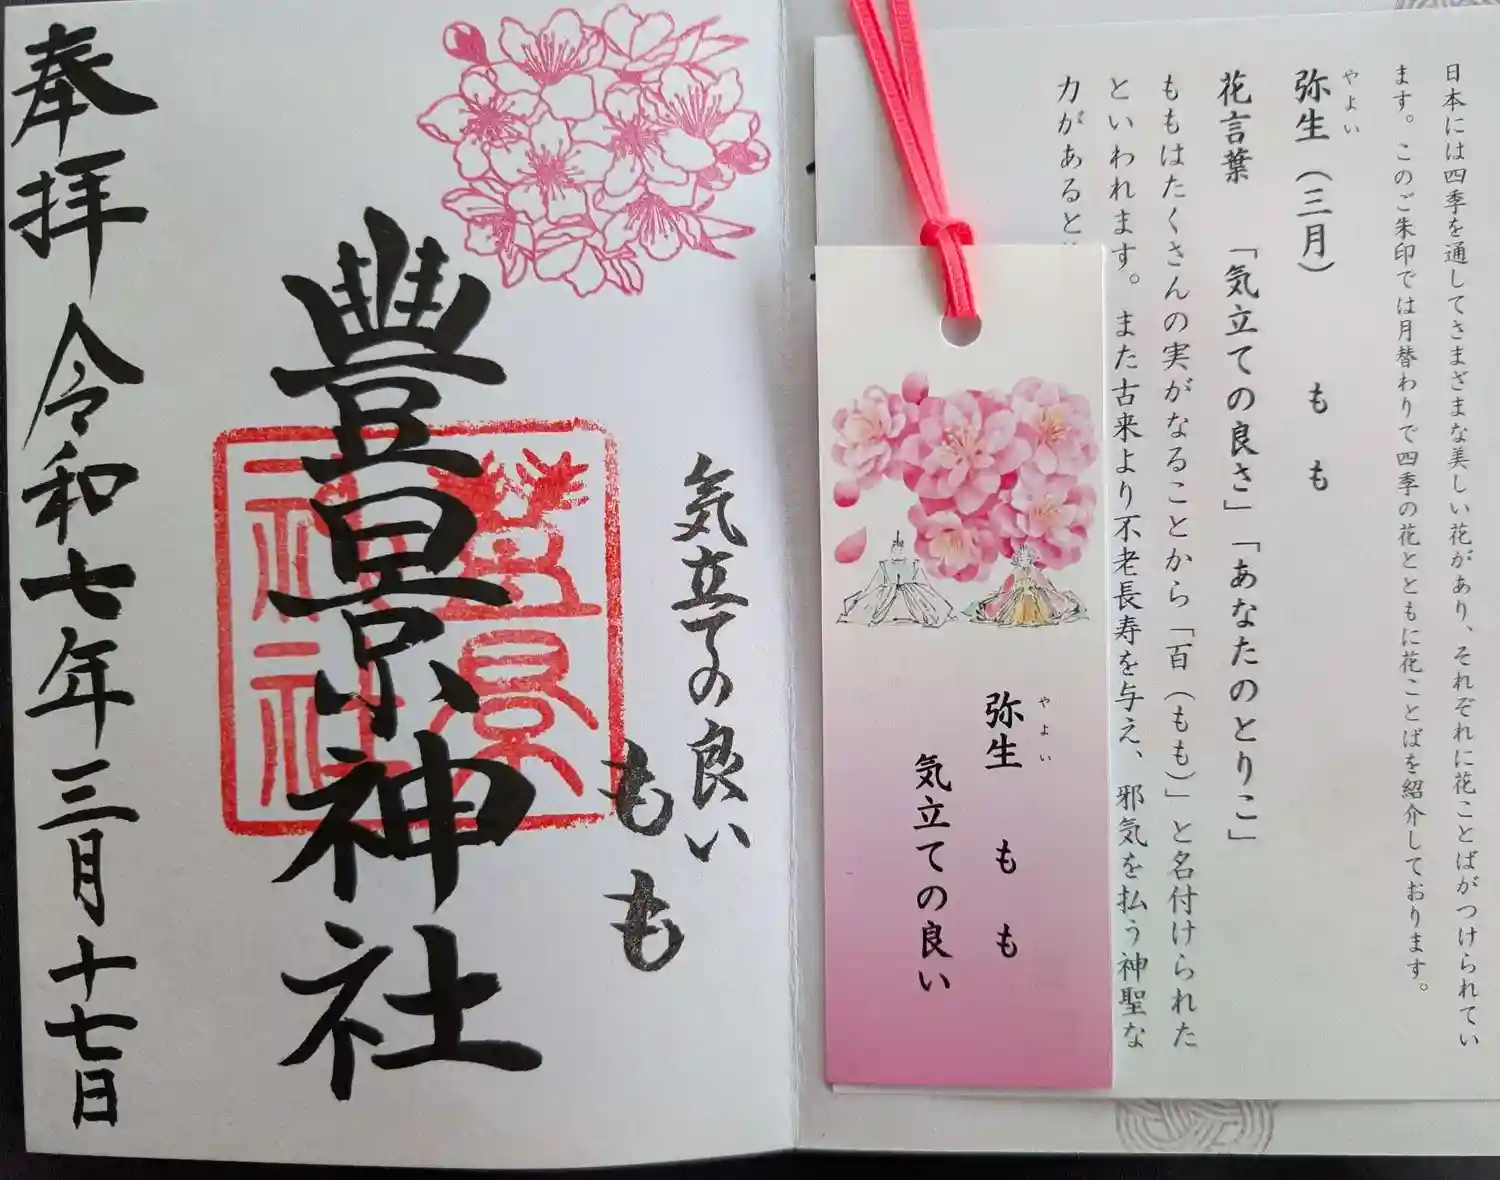 日本には四季を通してさまざまな美しい花があり、それぞれに花ことばがつけられてい
ます。このご朱印では月替わりで四季の花とともに花ことばを紹介しております。
弥生（三月）　もも
やよい
花言葉　「気立ての良さ」「あなたのとりこ」
ももはたくさんの実がなることから「百（もも）」と名付けられた
といわれます。また古来より不老長寿を与え、邪気を払う神聖な
力があると
弥生　もも
やよい
気立ての良い
気立ての良い
もも
豊景神社
豊景
神社
奉拝　令和七年三月十七日